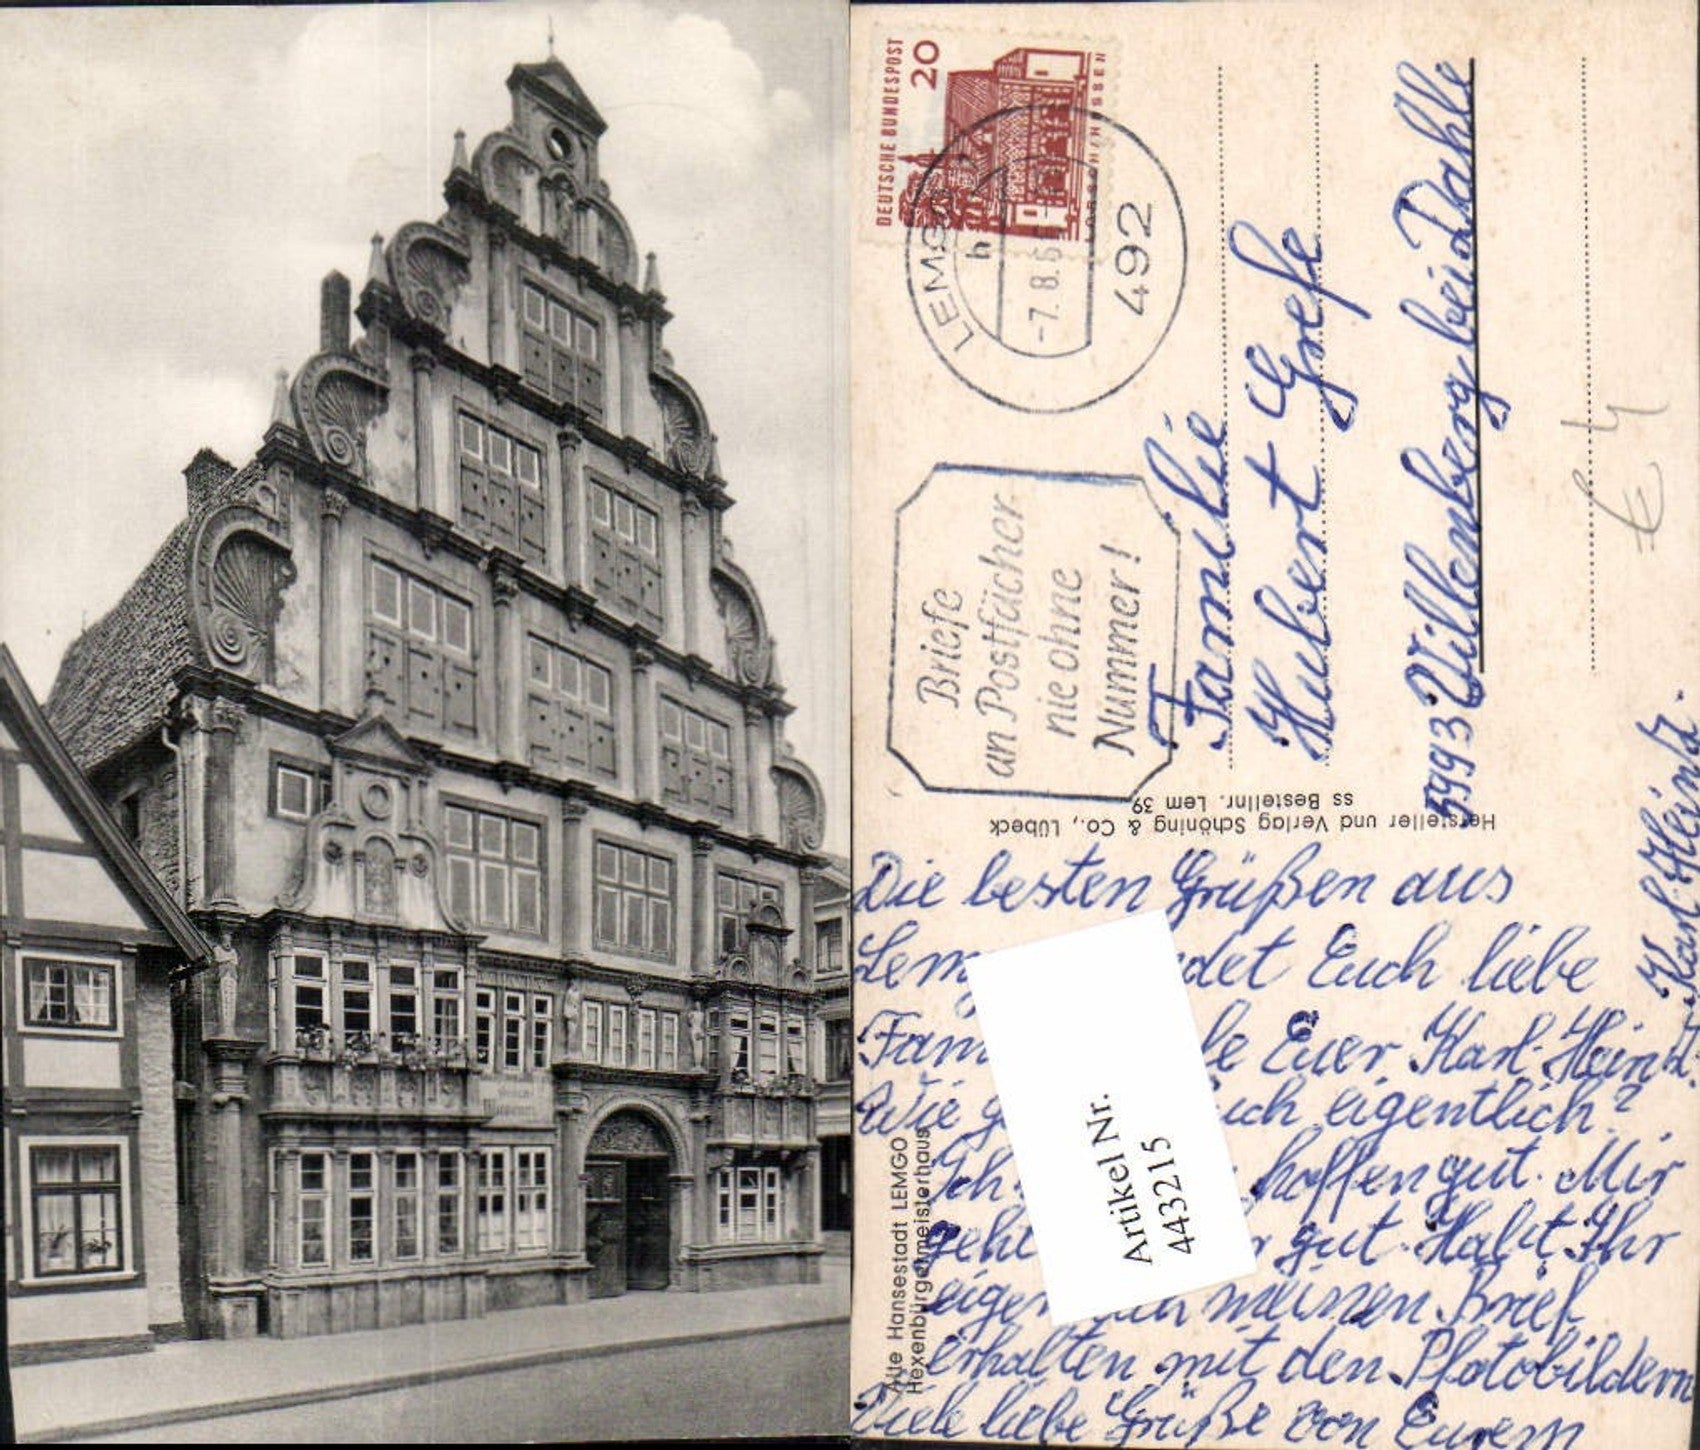 Städt. Museum
DEUTSCHE BUNDESPOST
20
LORSCH/HESSEN
LEMGO
h
-7.8.6
492
Briefe
an Postfächer
nie ohne
Nummer!
Familie
Hubert Grefe
5993 Willenberg bei Dahle
€ 4
Hersteller und Verlag Schöning & Co., Lübeck
ss Bestellnr. Lem 39
Alte Hansestadt LEMGO
Hexenbürgermeisterhaus
Die besten Grüßen aus
Lem det Euch liebe
Fam Euer Karl-Heinz.
Wie g uch eigentlich?
Ich hoffen gut. Mir
geht gut. Habt Ihr
eigen meinen Brief
erhalten mit den Photobildern
Viele liebe Grüße von Eurem
Karl Heinz.
Artikel Nr.
443215